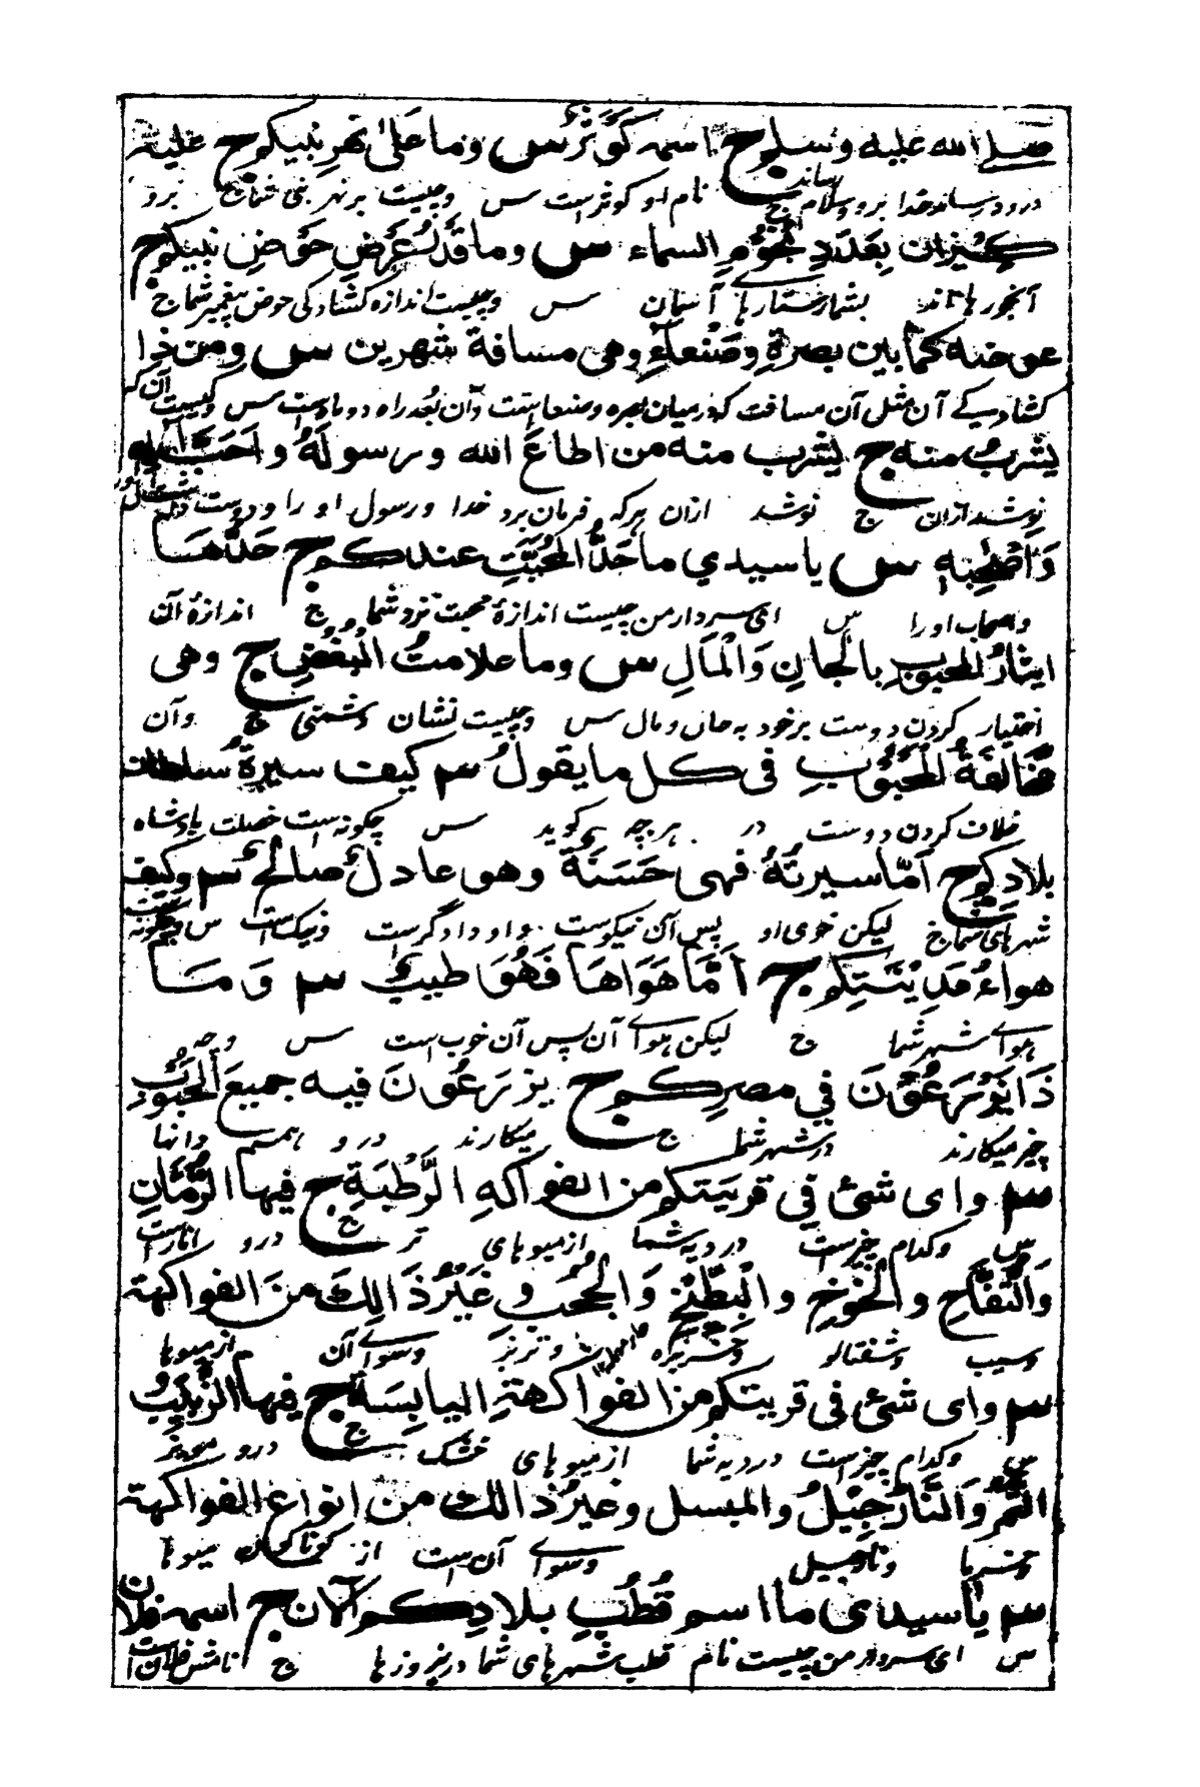 صلے الله عليه وسلم ج اسمه كَوثَرٌ س وما عَلىٰ نَهرِ نبيكم ج عليه
درود رساند خدا برو و سلام رساند ج نام او کوثر است س و چیست بر نهر نبی شما ج برو
كيزان بِعَدَدِ نُجُوْمِ السماء س وما قَدْرُ عَرْضِ حَوْضِ نبيكم ج
آبخورها اند بشمار ستارهاے آسمان س و چیست اندازه کشادگی حوض پیغمبر شما ج
عرضه كما بين بصرةِ وصَنْعاءِ وهى مسافة شهرين س ومن ذا
کشادگے آن مثل آن مسافت که درمیان بصره و صنعا است و آن بُعد راه دو ماه است س و کیست آن که
يشربُ منه ج يشرب منه من اطاعَ الله ورسولَهُ واَحَبَّ اٰله
نوشد ازان ج نوشد ازان هر که فرمان برد خدا و رسول او را و دوست دارد
وَاَصْحٰبِهٖ س يا سيدي ما حَدُّ الْمُحَبَّتِ عندكم ج حَدُّهَا
و اصحاب او را س ای سردار من چیست اندازهٔ محبت نزد شما ج اندازهٔ آن
ايثارُ المحبوبِ بالْجانِ وَالْمَالِ س وما علامتُ الْبُغْضِ ج وهى
اختیار کردن دوست بر خود به جان و مال س و چیست نشان دشمنی ج و آن
مُخَالَفَةُ الْمَحْبُوْبِ فى كل ما يقولُ س كيف سيرةُ سلطان
خلاف کردن دوست در هر چه گوید س چگونه است خصلت پادشاه
بلادِكم ج اَمّا سيرتُهُ فهى حَسَنَةٌ وهو عادلٌ صالحٌ س وكيف
شهرهای شما ج لیکن خوی او پس آن نیکوست و او دادگرست و نیک است س و چگونه است
هواءُ مَدِيْنَتِكم ج اَمَّا هَوَاهَا فَهُوَ طيبٌ س وَمَا
هواے شهر شما ج لیکن هواے آن پس آن خوب است س و چه
ذَا يَزْرَعُوْنَ في مصرِكم ج يزرَعُونَ فيه جميعَ الْحُبُوْبِ
چیز میکارند در شهر شما ج میکارند درو همه دانها
س واى شئ في قريَتِكم من الفواكهِ الرَّطْبَةِ ج فيها الرُّمَّانِ
س و کدام چیز است در دیه شما از میوهای تر ج درو انار است
وَالتُّفَّاحِ والْخَوْخِ والْبِطِّيْخِ وَالْحَبحبِ وغَيْرُ ذَالِكَ منَ الفواكهة
و سیب و شفتالو و خربزه و تربز و سواے آن از میوها
س واى شئ فى قريتكم من الفواكهةِ اليابِسَةِ ج فيها الزَّبِيْبُ
س و کدام چیز است در دیه شما از میوهای خشک ج درو مویز
التَّمْرُ وَالنَّارْجِيْلُ والمبسل وغيرُ ذالك من انواع الفواكهة
و خرما و نارجیل و سواے آن است از گوناگون میوها
س يا سيدى ما اسم قُطُبِ بلادِكم الآن ج اسمه فلان
س ای سردار من چیست نام قطب شهرهای شما درین روزها ج نامش فلان است